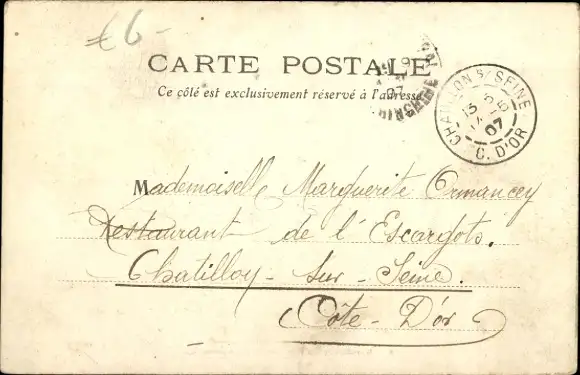 € 6-
CARTE POSTALE
Ce côté est exclusivement réservé à l'adresse
CHATILLON S/ SEINE
13
07
C. D'OR
Mademoiselle Marguerite Ormancey
Restaurant de l'Escargots.
Chatillon-sur-Seine.
Côte-D'or